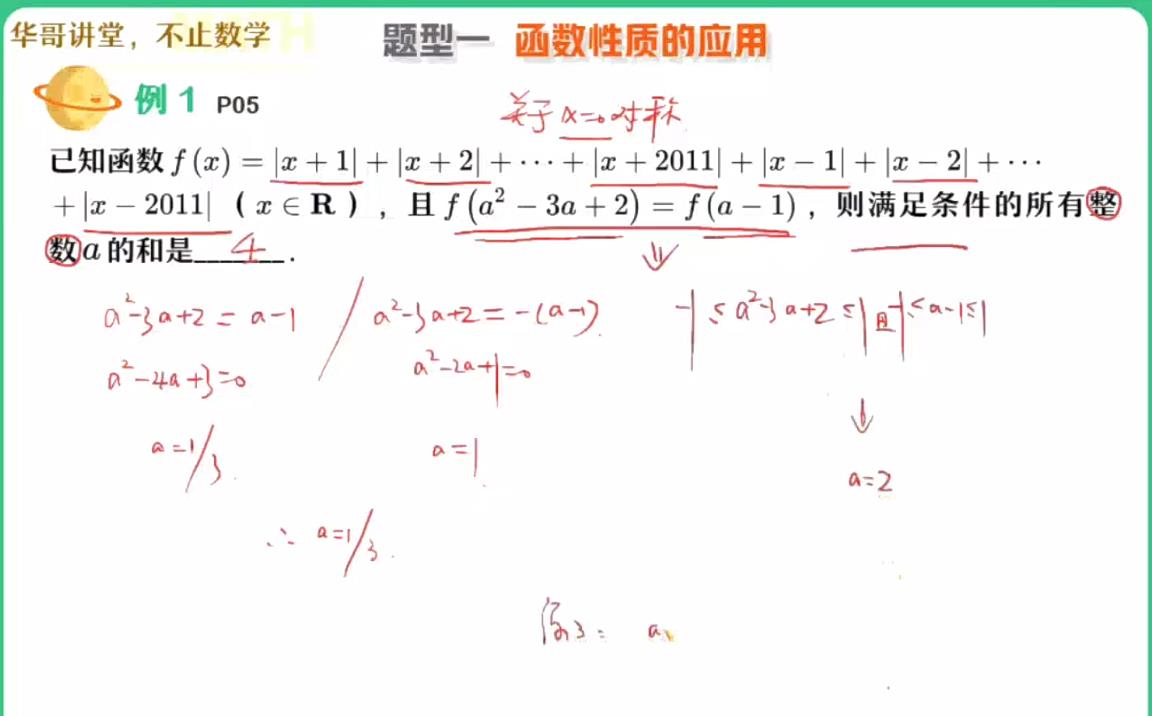 华哥讲堂，不止数学
题型一 函数性质的应用
例 1 P05
关于 x=0 对称
已知函数 f(x) = |x + 1| + |x + 2| + ⋯ + |x + 2011| + |x − 1| + |x − 2| + ⋯
+ |x − 2011| （x ∈ R），且 f(a² − 3a + 2) = f(a − 1)，则满足条件的所有整
数 a 的和是 4 .
a²-3a+2 = a-1 / a²-3a+2 = -(a-1) -1 ≤ a²-3a+2 ≤ 1 且 -1 ≤ a-1 ≤ 1
a²-4a+3=0 a²-2a+1=0
a=1/3. a=1
a=2
∴ a=1/3.